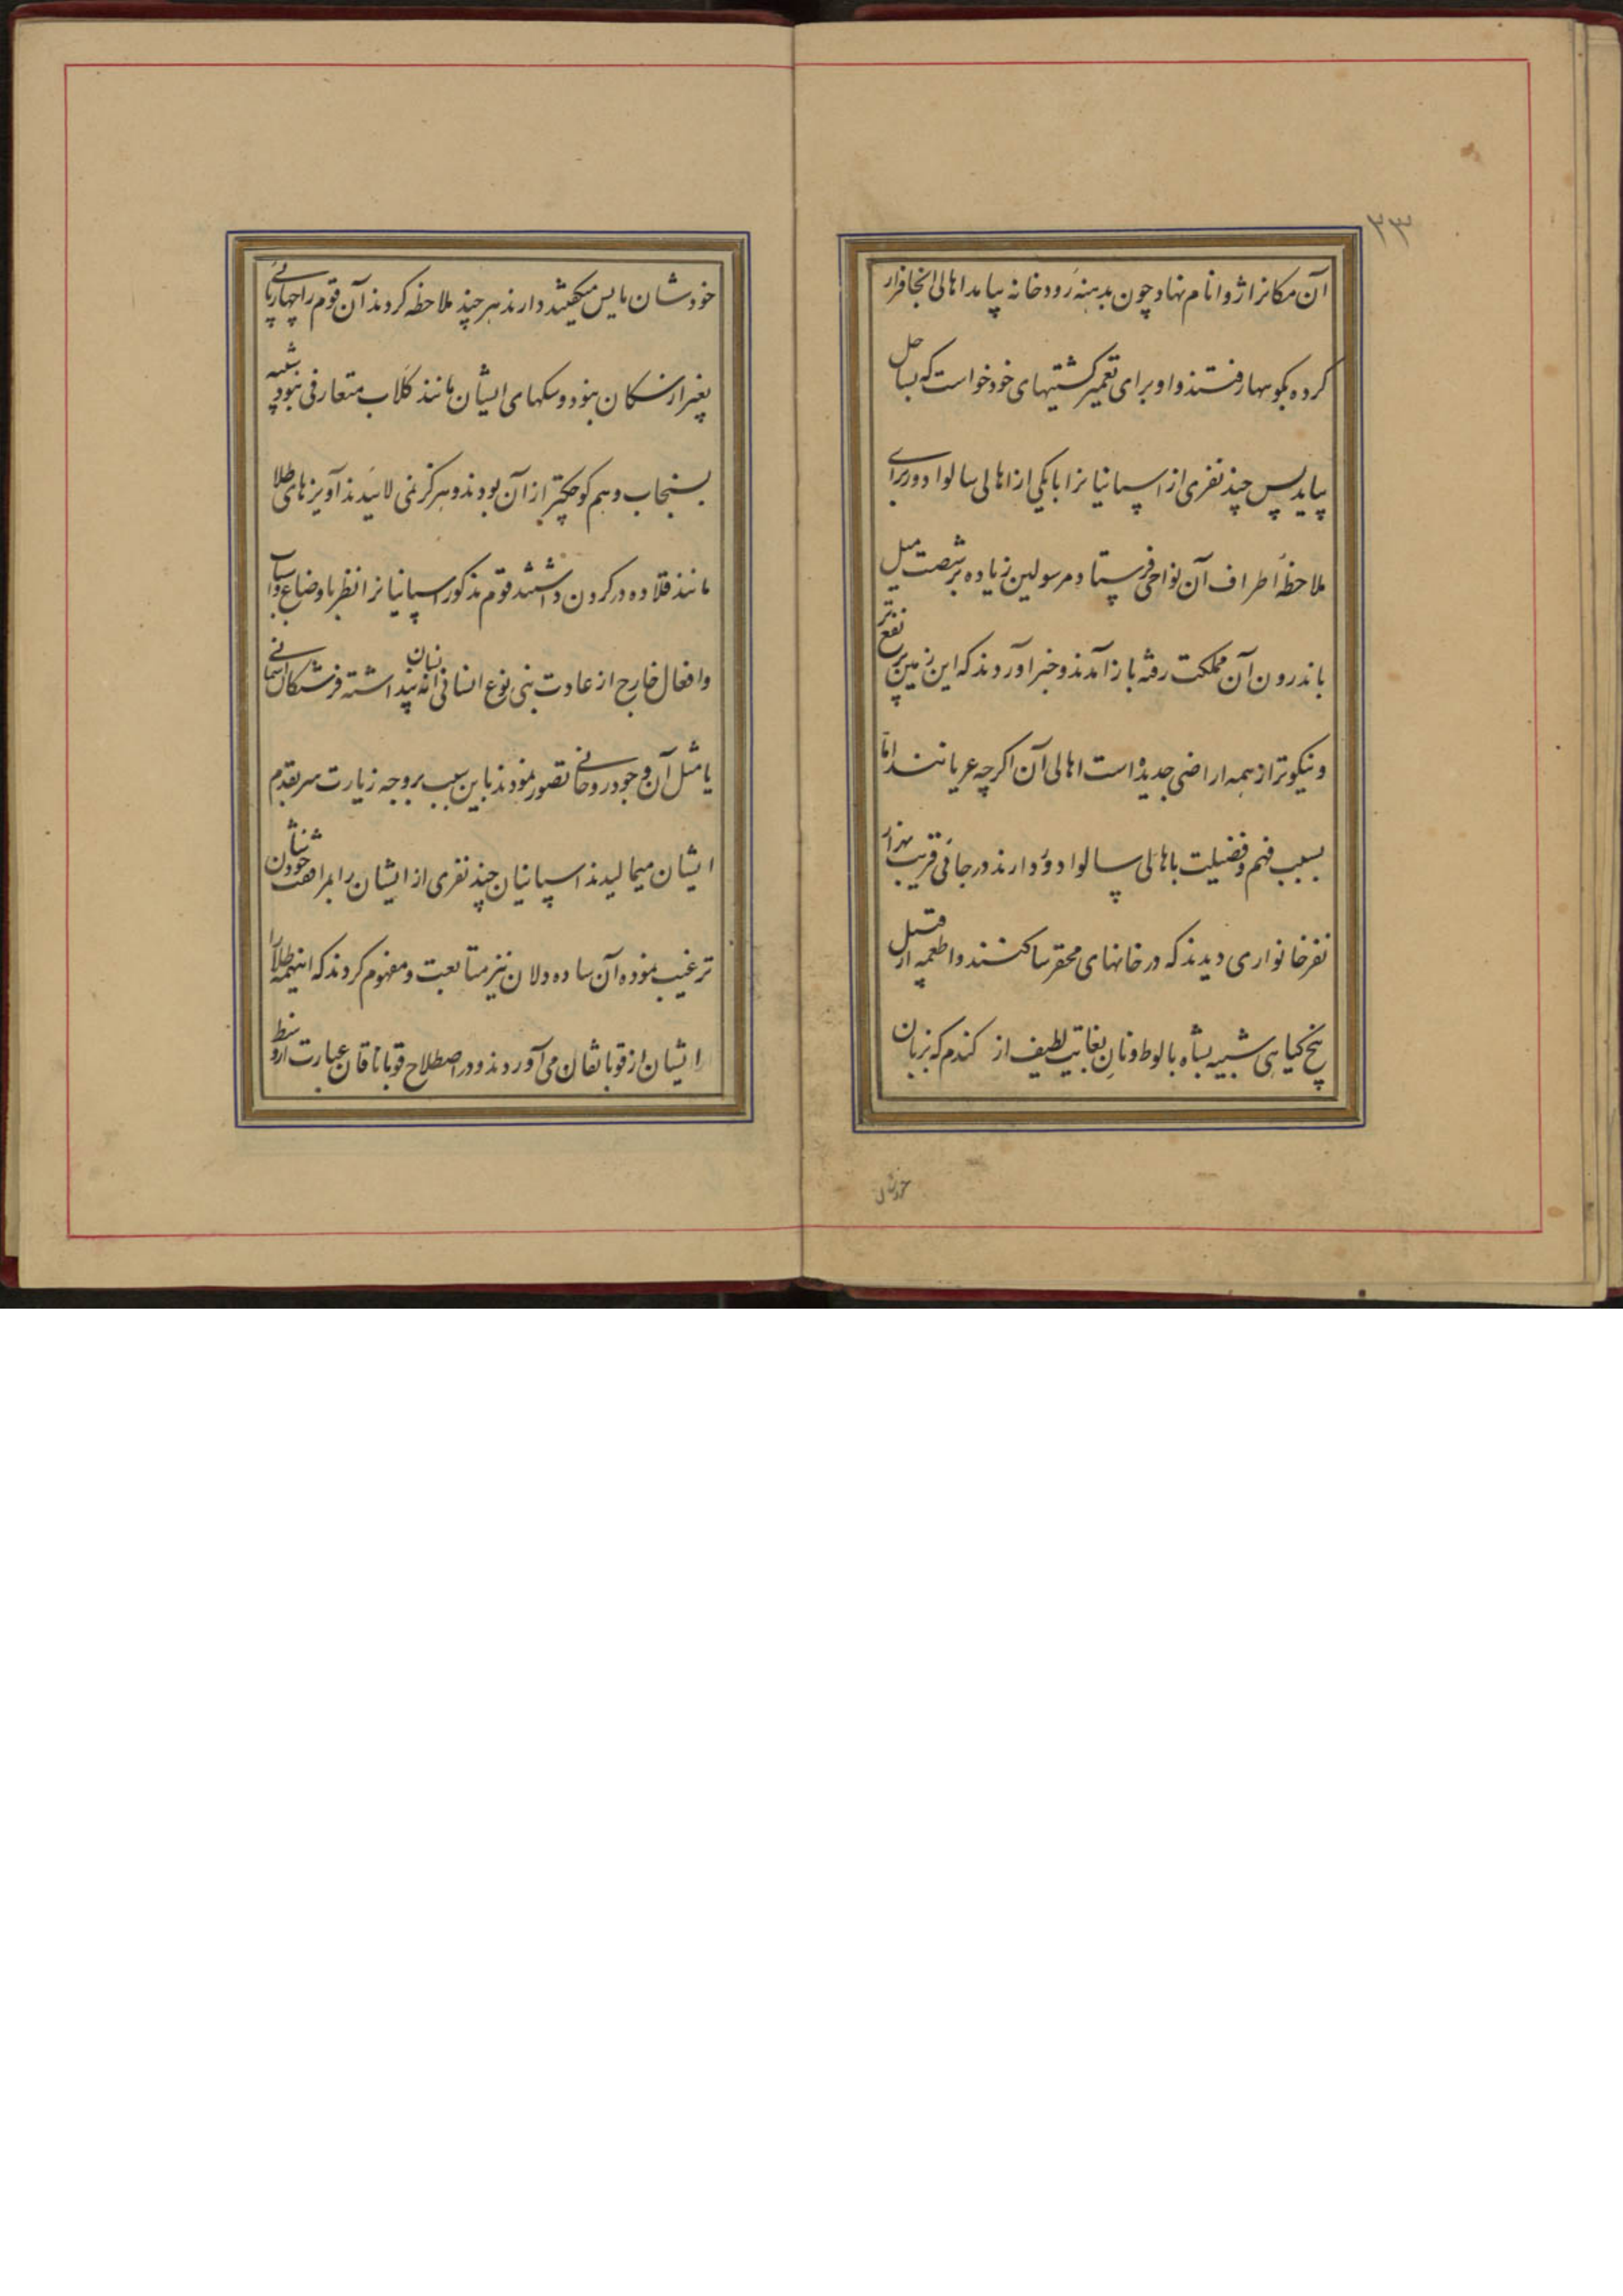 ۳۳
آن مکانرا ژوانام نهاد چون بدهنهٔ رودخانه بیامد اهالی انجا فرار
کرده بکوهها رفتند و او برای تعمیر کشتیهای خود خواست که بساحل
بیاید پس چند نفری از اسپانیانرا با یکی از اهالی سالوادور برای
ملاحظهٔ اطراف آن نواحی فرستاد مرسولین زیاده بر شصت میل
باندرون آن مملکت رفته باز آمدند و خبر آوردند که این زمین پر نفع تر
و نیکوتر از همه اراضی جدیده است اهالی آن اکرچه عریانند اما
بسبب فهم و فضیلت باهالی سالوادور دارند در جائی قریب هزار
نفر خانواری دیدند که در خانهای محقر ساکنند و اطعمه از قبیل
بیخ کیاهی شبیه بشاه بالوط و نان بغایت لطیف از کندم که بزبان
خودشان
خودشان مایس میکفتند دارند هر چند ملاحظه کردند آن قوم را چهارپائی
بغیر از سکان نبود و سکهای ایشان مانند کلاب متعارفی نبود شبیه
بسنجاب و هم کوچکتر از آن بودند و هرکز نمی لائیدند آویزهای طلا
مانند قلاده در کردن داشتند قوم مذکور اسپانیانرا نظر باوضاع و اسباب
وافعال خارج از عادت بنی نوع انسانی نه انسان پنداشته فرشتکان آسمانی
یا مثل آن وجود روحانی تصور نمودند باین سبب بر وجه زیارت سر بقدم
ایشان میمالیدند اسپانیان چند نفری از ایشان را بمرافقت خودشان
ترغیب نموده آن ساده دلان نیز متابعت و مفهوم کردند که اینهمه طلا را
ایشان از قوباناقان می آوردند و در اصطلاح قوباناقان عبارت از وسط